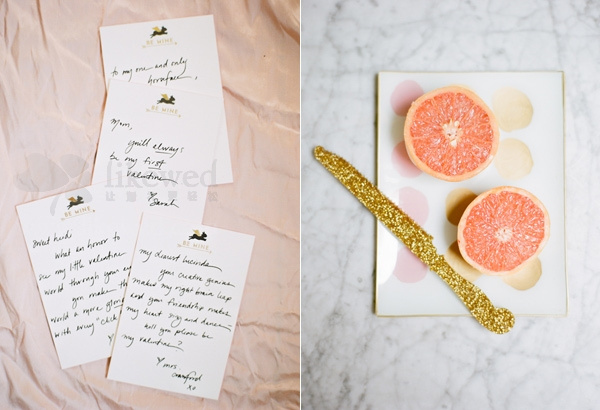 BE MINE
to my one and only
horseface,
Mom,
you'll always
be my first
valentine
Sarah
likewed
BE MINE
Sweet heidi
what an honor to
see my little valentine
world through your
you make the
world a more
with every "click"
BE MINE
my dearest lucinda
your creative genius
makes my right brain leap
and your friendship makes
my heart sing and dance.
will you please be
my valentine?
mrs.
xo